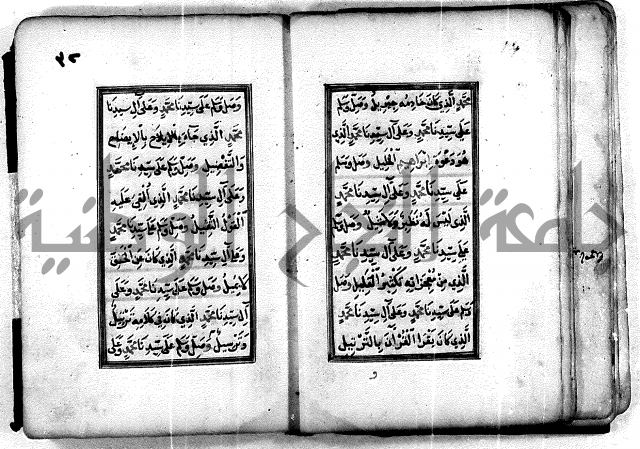 محمد الذي كان خادمه جبريل وصل وسلم
على سيدنا محمد وعلى آل سيدنا محمد الذي
هو دعوة إبراهيم الخليل وصل وسلم
على سيدنا محمد وعلى آل سيدنا محمد
الذي ليس له نظير ولا مثيل وصل وسلم
على سيدنا محمد وعلى آل سيدنا محمد
الذي من معجزاته تكثير القليل وصل
وسلم على سيدنا محمد وعلى آل سيدنا محمد
الذي كان يقرأ القرآن بالترتيل
٣٢
وصل وسلم على سيدنا محمد وعلى آل سيدنا
محمد الذي جاء بالإيضاح
والتفصيل وصل وسلم على سيدنا محمد
وعلى آل سيدنا محمد الذي ألقي عليه
القول الثقيل وصل وسلم على سيدنا محمد
وعلى آل سيدنا محمد الذي كان
كا يميل وصل وسلم على سيدنا محمد وعلى
آل سيدنا محمد الذي كان في كلامه ترتيل
وترسيل وصل وسلم على سيدنا محمد وعلى
جامعة النجاح الوطنية